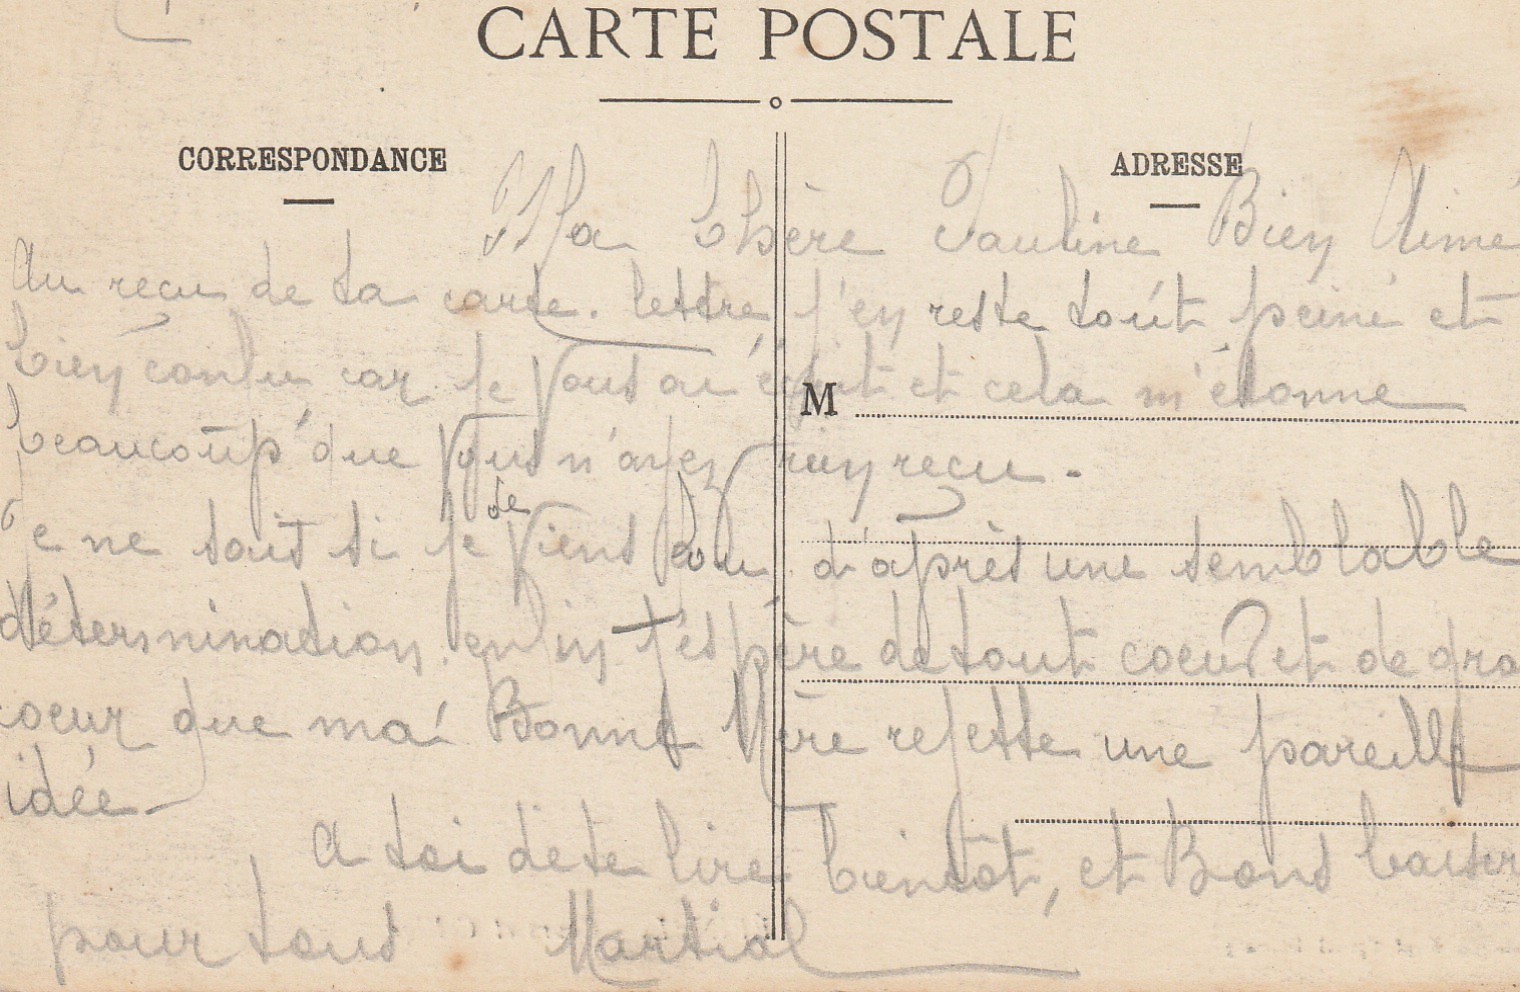 CARTE POSTALE
CORRESPONDANCE
ADRESSE
M
Ma Chère Pauline Bien Aimé
Au reçu de ta carte. lettre, j'en reste tout peiné et
bien car je Vous ai écrit et cela m'étonne
beaucoup que Vous n'ayez rien reçu.
Je ne sait si je de Viens d'après une semblable
détermination. enfin j'espère de tout coeur et de gra
coeur que ma Bonne Mère rejette une pareille
idée
A toi de te lire bientôt, et Bons baiser
pour tous Martial